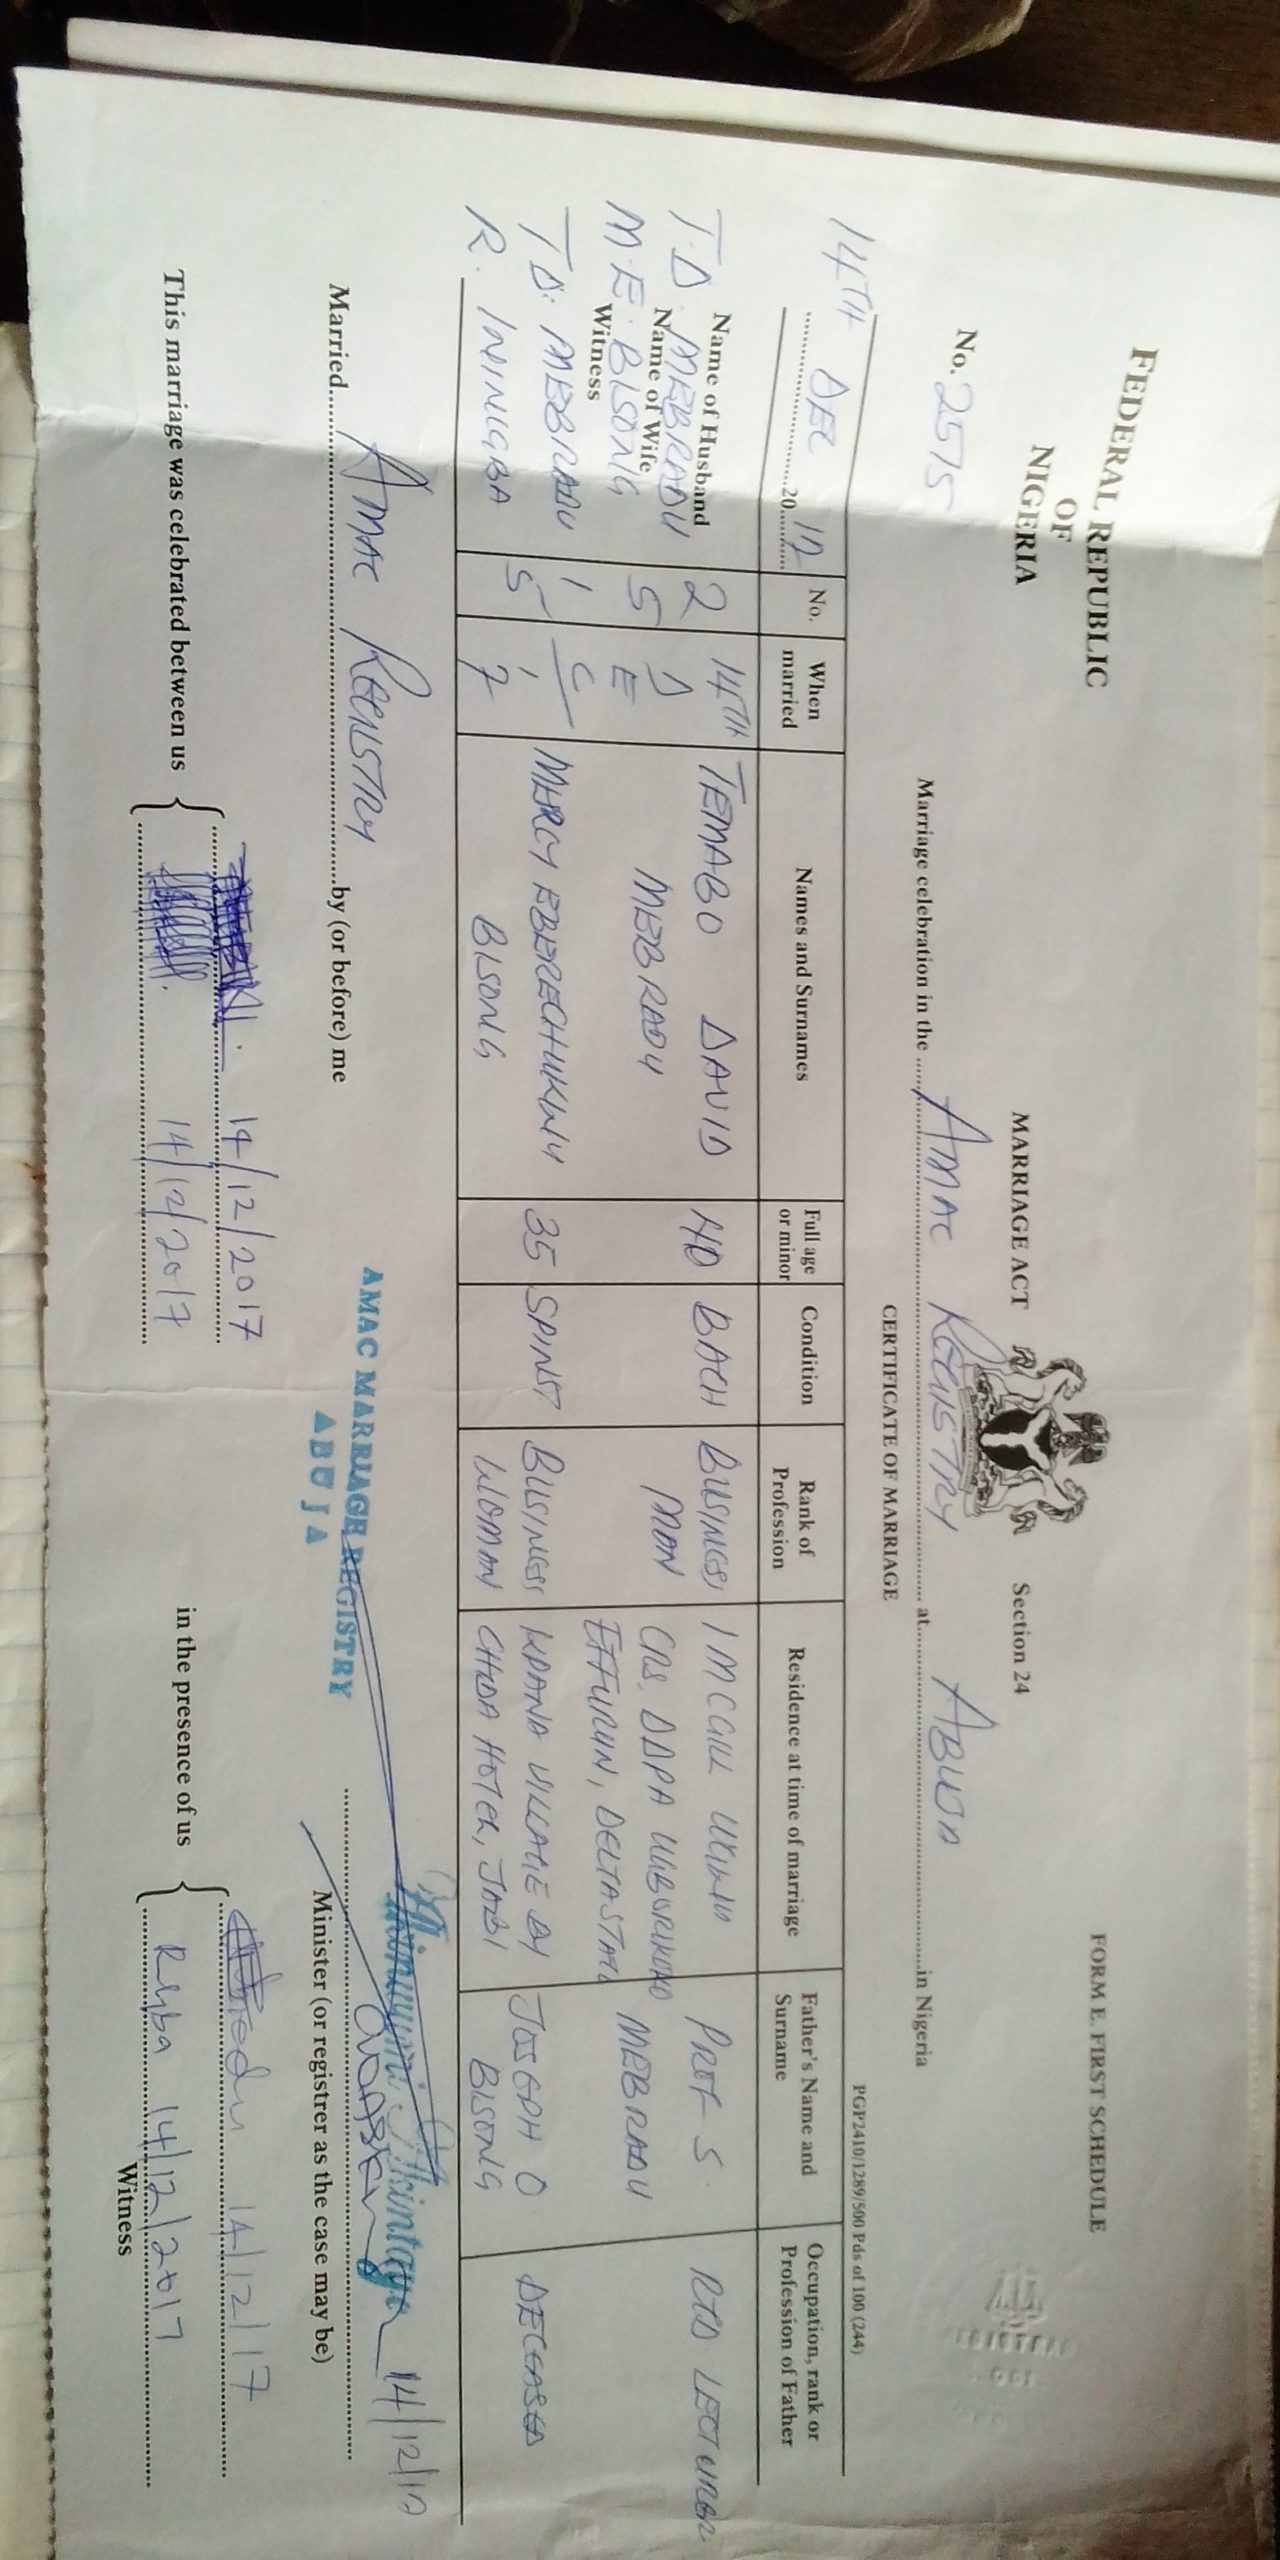 FORM E. FIRST SCHEDULE
FEDERAL REPUBLIC
OF
NIGERIA
MARRIAGE ACT Section 24
No. 2575
Marriage celebration in the AMAC REGISTRY at ABUJA in Nigeria
CERTIFICATE OF MARRIAGE
PGP2410/1289/500 Pds of 100 (244)
14TH DEC 20 17
No.
When married
Names and Surnames
Full age or minor
Condition
Rank of Profession
Residence at time of marriage
Father's Name and Surname
Occupation, rank or Profession of Father
Name of Husband
T.D. MEBRADU
Name of Wife
M.E. BISONG
Witness
T.D. MEBRADU
R. ININGBA
2 5 1 5
14TH D E C 17
TEMABO DAVID
MEBRADU
40
BACH
BUSINESS
MAN
1 MCGILL
EFFURUN, DELTA STATE
PROF S.
MEBRADU
RTD LECTURER
MERCY EBERECHUKWU
BISONG
35
SPINST
BUSINESS
WOMAN
KPANA VILLAGE BY
CHIDA HOTEL, JABI
JOSEPH O
BISONG
DECEASED
Married AMAC REGISTRY by (or before) me
14/12/17
Minister (or registrer as the case may be)
AMAC MARRIAGE REGISTRY
ABUJA
This marriage was celebrated between us
14/12/2017
14/12/2017
in the presence of us
14/12/17
14/12/2017
Witness